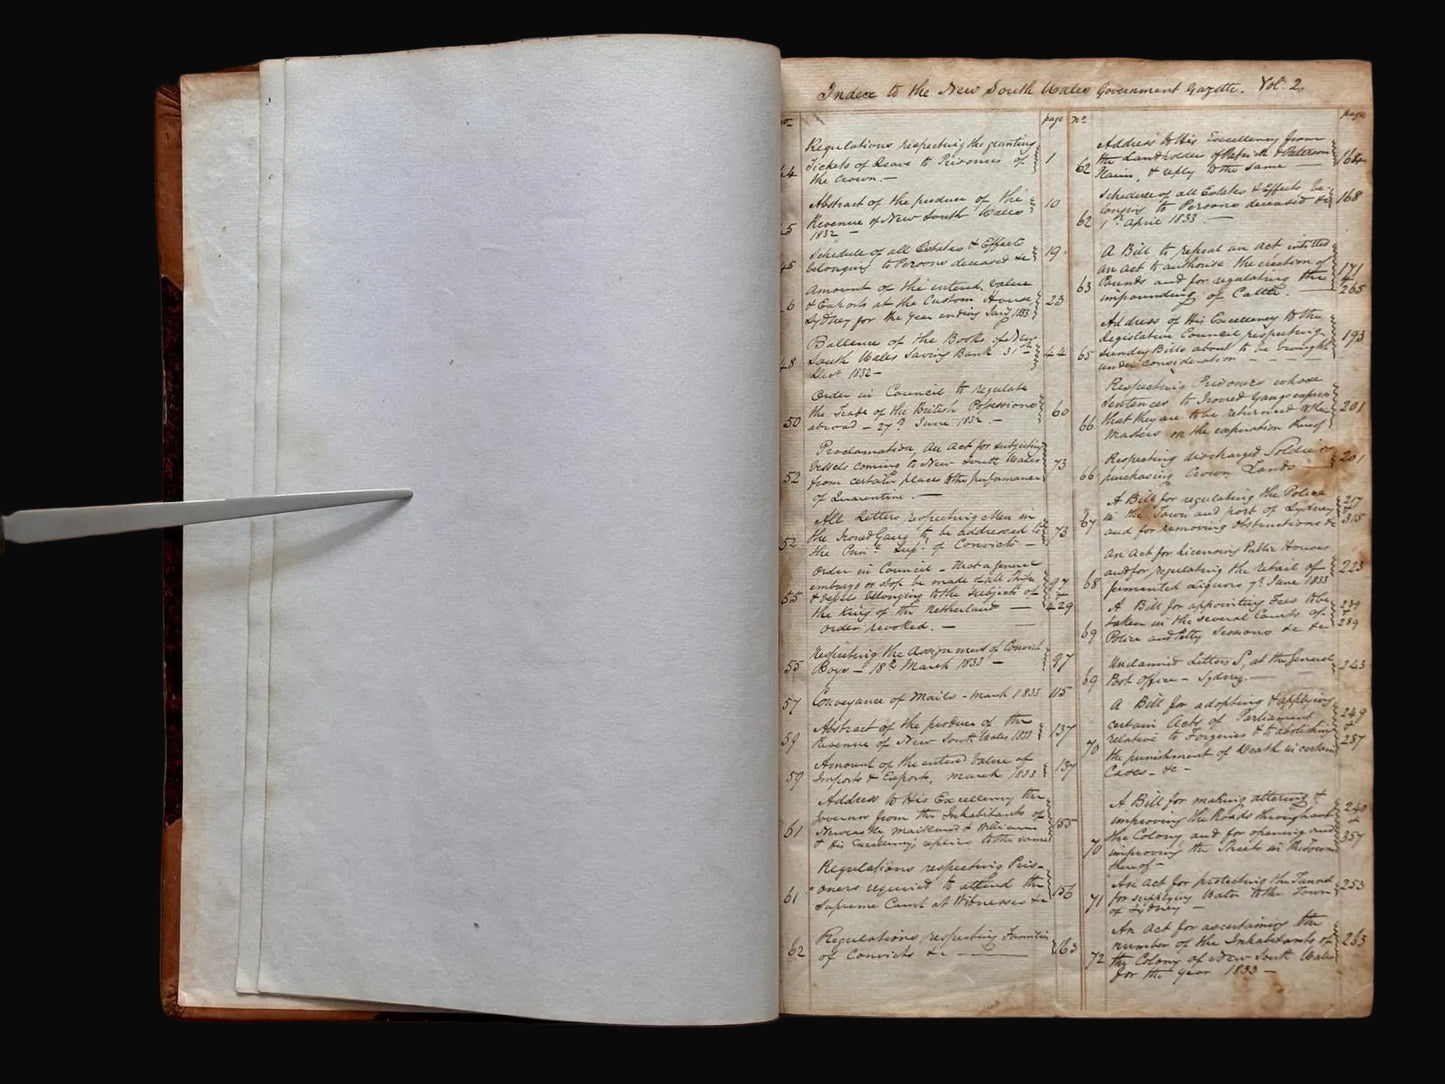 Index to the New South Wales Government Gazette. Vol. 2.
page
Regulations respecting the granting
Tickets of Leave to Prisoners of 1
the Crown.—
Abstract of the produce of the
Revenue of New South Wales 10
1832 —
Schedule of all Estates & Effects
belonging to Persons deceased &c 19
Amount of the entered value
& Exports at the Custom House, 23
Sydney for the year ending Jany 1833
Ballence of the Books of New
48 South Wales Saving Bank 31st 44
Decr 1832 —
Order in Council to regulate
the Trade of the British Possessions 60
50 abroad — 27th June 1832. —
Proclamation, An Act for subjecting
Vessels coming to New South Wales 73
52 from certain places to the performance
of Quarantine. —
All Letters respecting Men in
the Ironed Gang to be addressed to 73
52 the Prinl Supt of Convicts —
Order in Council — that a general
embargo or stop be made of all Ships 97
55 & Vessels belonging to the subjects of +
the King of the Netherlands — 429
Order revoked. —
Respecting the Assignment of Convict
55 Boys — 18th March 1833 — 97
57 Conveyance of Mails — March 1833 115
Abstract of the produce of the
59 Revenue of New South Wales 1833 137
Amount of the entered value of
59 Imports & Exports, March 1833 137
Address to His Excellency the
Governor from the Inhabitants of
61 Newcastle Maitland & Williams 155
& His Excellency's reply to the same
Regulations respecting Pris-
61 oners required to attend the 156
Supreme Court at Witnesses &c
Regulations respecting Families
62 of Convicts &c — 163
No. page
Address to His Excellency from
the Landholders of Patrick & Paterson 164
62 Plains, & reply to the same —
Schedule of all Estates & Effects be-
longing to Persons deceased &c 168
62 1st April 1833. —
A Bill to repeal an Act intitled
an act to authorise the erection of 171
63 Pounds and for regulating the &
impounding of Cattle. — 265
Address of His Excellency to the
Legislative Council respecting 193
65 sundry Bills about to be brought
under consideration — — —
Respecting Prisoners whose
Sentences to Ironed Gangs expire
that they are to be returned to the 201
66 Masters on the expiration thereof
Respecting discharged Soldiers
66 purchasing Crown Lands — 201
A Bill for regulating the Police 217
67 in the Town and port of Sydney +
and for removing obstructions &c 315
An Act for Licensing Public Houses
and for regulating the retail of 223
68 fermented Liquors 7th June 1833
A Bill for appointing Fees to be 239
taken in the several Courts of +
69 Police and Petty Sessions &c &c 289
Unclaimed Letters, at the General
69 Post Office — Sydney. — 243
A Bill for adopting & applying
certain Acts of Parliament 249
relative to Forgeries & to abolishing +
70 the punishment of Death in certain 287
Cases — &c —
A Bill for making altering &
improving the Roads throughout +
the Colony and for opening and 357
70 improving the Streets in the Towns
thereof —
An Act for protecting the Tunnel
71 for supplying Water to the Town 253
of Sydney —
An Act for ascertaining the
number of the Inhabitants of 263
72 the Colony of New South Wales
for the year 1833 —